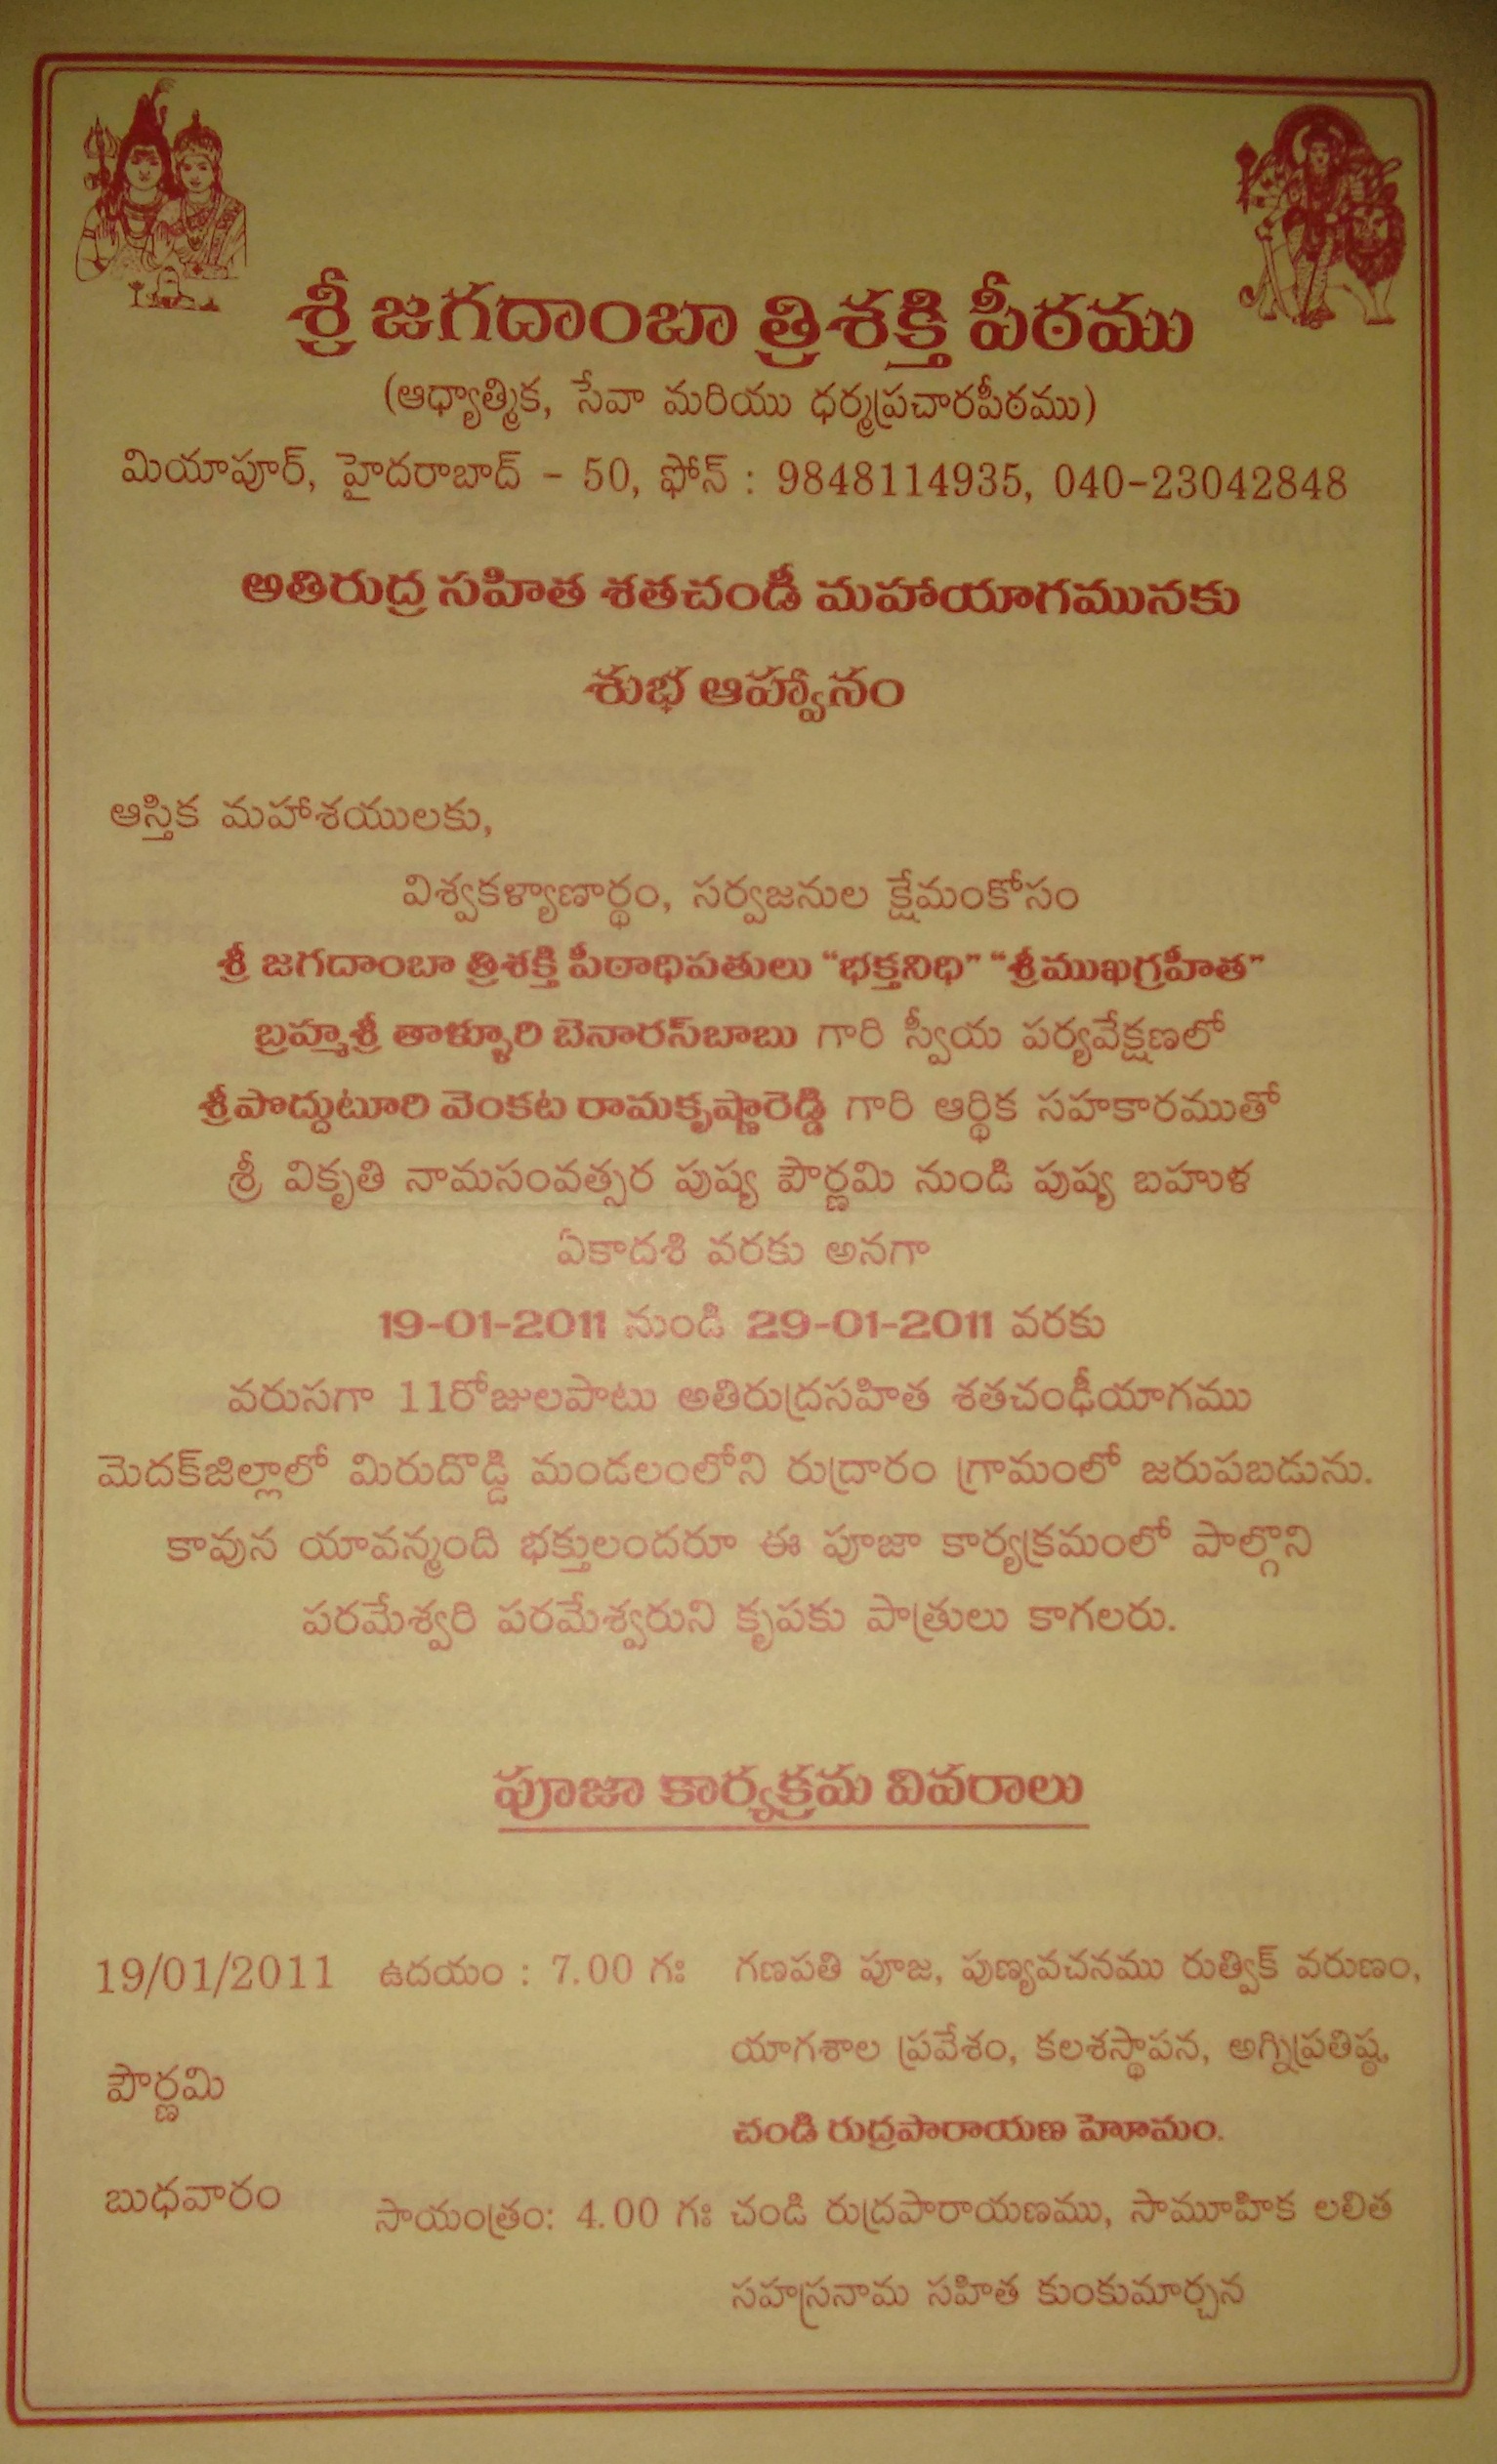 శ్రీ జగదాంబా త్రిశక్తి పీఠము
(ఆధ్యాత్మిక, సేవా మరియు ధర్మప్రచారపీఠము)
మియాపూర్, హైదరాబాద్ - 50, ఫోన్ : 9848114935, 040-23042848
అతిరుద్ర సహిత శతచండీ మహాయాగమునకు
శుభ ఆహ్వానం
ఆస్తిక మహాశయులకు,
విశ్వకళ్యాణార్థం, సర్వజనుల క్షేమంకోసం
శ్రీ జగదాంబా త్రిశక్తి పీఠాధిపతులు "భక్తనిధి" "శ్రీముఖగ్రహీత"
బ్రహ్మశ్రీ తాళ్ళూరి బెనారస్‌బాబు గారి స్వీయ పర్యవేక్షణలో
శ్రీపొద్దుటూరి వెంకట రామకృష్ణారెడ్డి గారి ఆర్థిక సహకారముతో
శ్రీ వికృతి నామసంవత్సర పుష్య పౌర్ణమి నుండి పుష్య బహుళ
ఏకాదశి వరకు అనగా
19-01-2011 నుండి 29-01-2011 వరకు
వరుసగా 11రోజులపాటు అతిరుద్రసహిత శతచండీయాగము
మెదక్‌జిల్లాలో మిరుదొడ్డి మండలంలోని రుద్రారం గ్రామంలో జరుపబడును.
కావున యావన్మంది భక్తులందరూ ఈ పూజా కార్యక్రమంలో పాల్గొని
పరమేశ్వరి పరమేశ్వరుని కృపకు పాత్రులు కాగలరు.
పూజా కార్యక్రమ వివరాలు
19/01/2011 ఉదయం : 7.00 గః గణపతి పూజ, పుణ్యవచనము రుత్విక్ వరుణం,
యాగశాల ప్రవేశం, కలశస్థాపన, అగ్నిప్రతిష్ఠ,
పౌర్ణమి
చండి రుద్రపారాయణ హోమం.
బుధవారం
సాయంత్రం: 4.00 గః చండి రుద్రపారాయణము, సామూహిక లలిత
సహస్రనామ సహిత కుంకుమార్చన